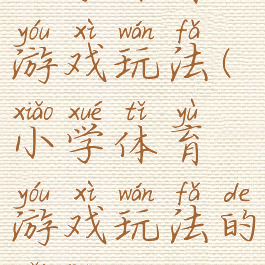 yóu xì wán fǎ
游戏玩法(
xiǎo xué tǐ yù
小学体育
yóu xì wán fǎ de
游戏玩法的